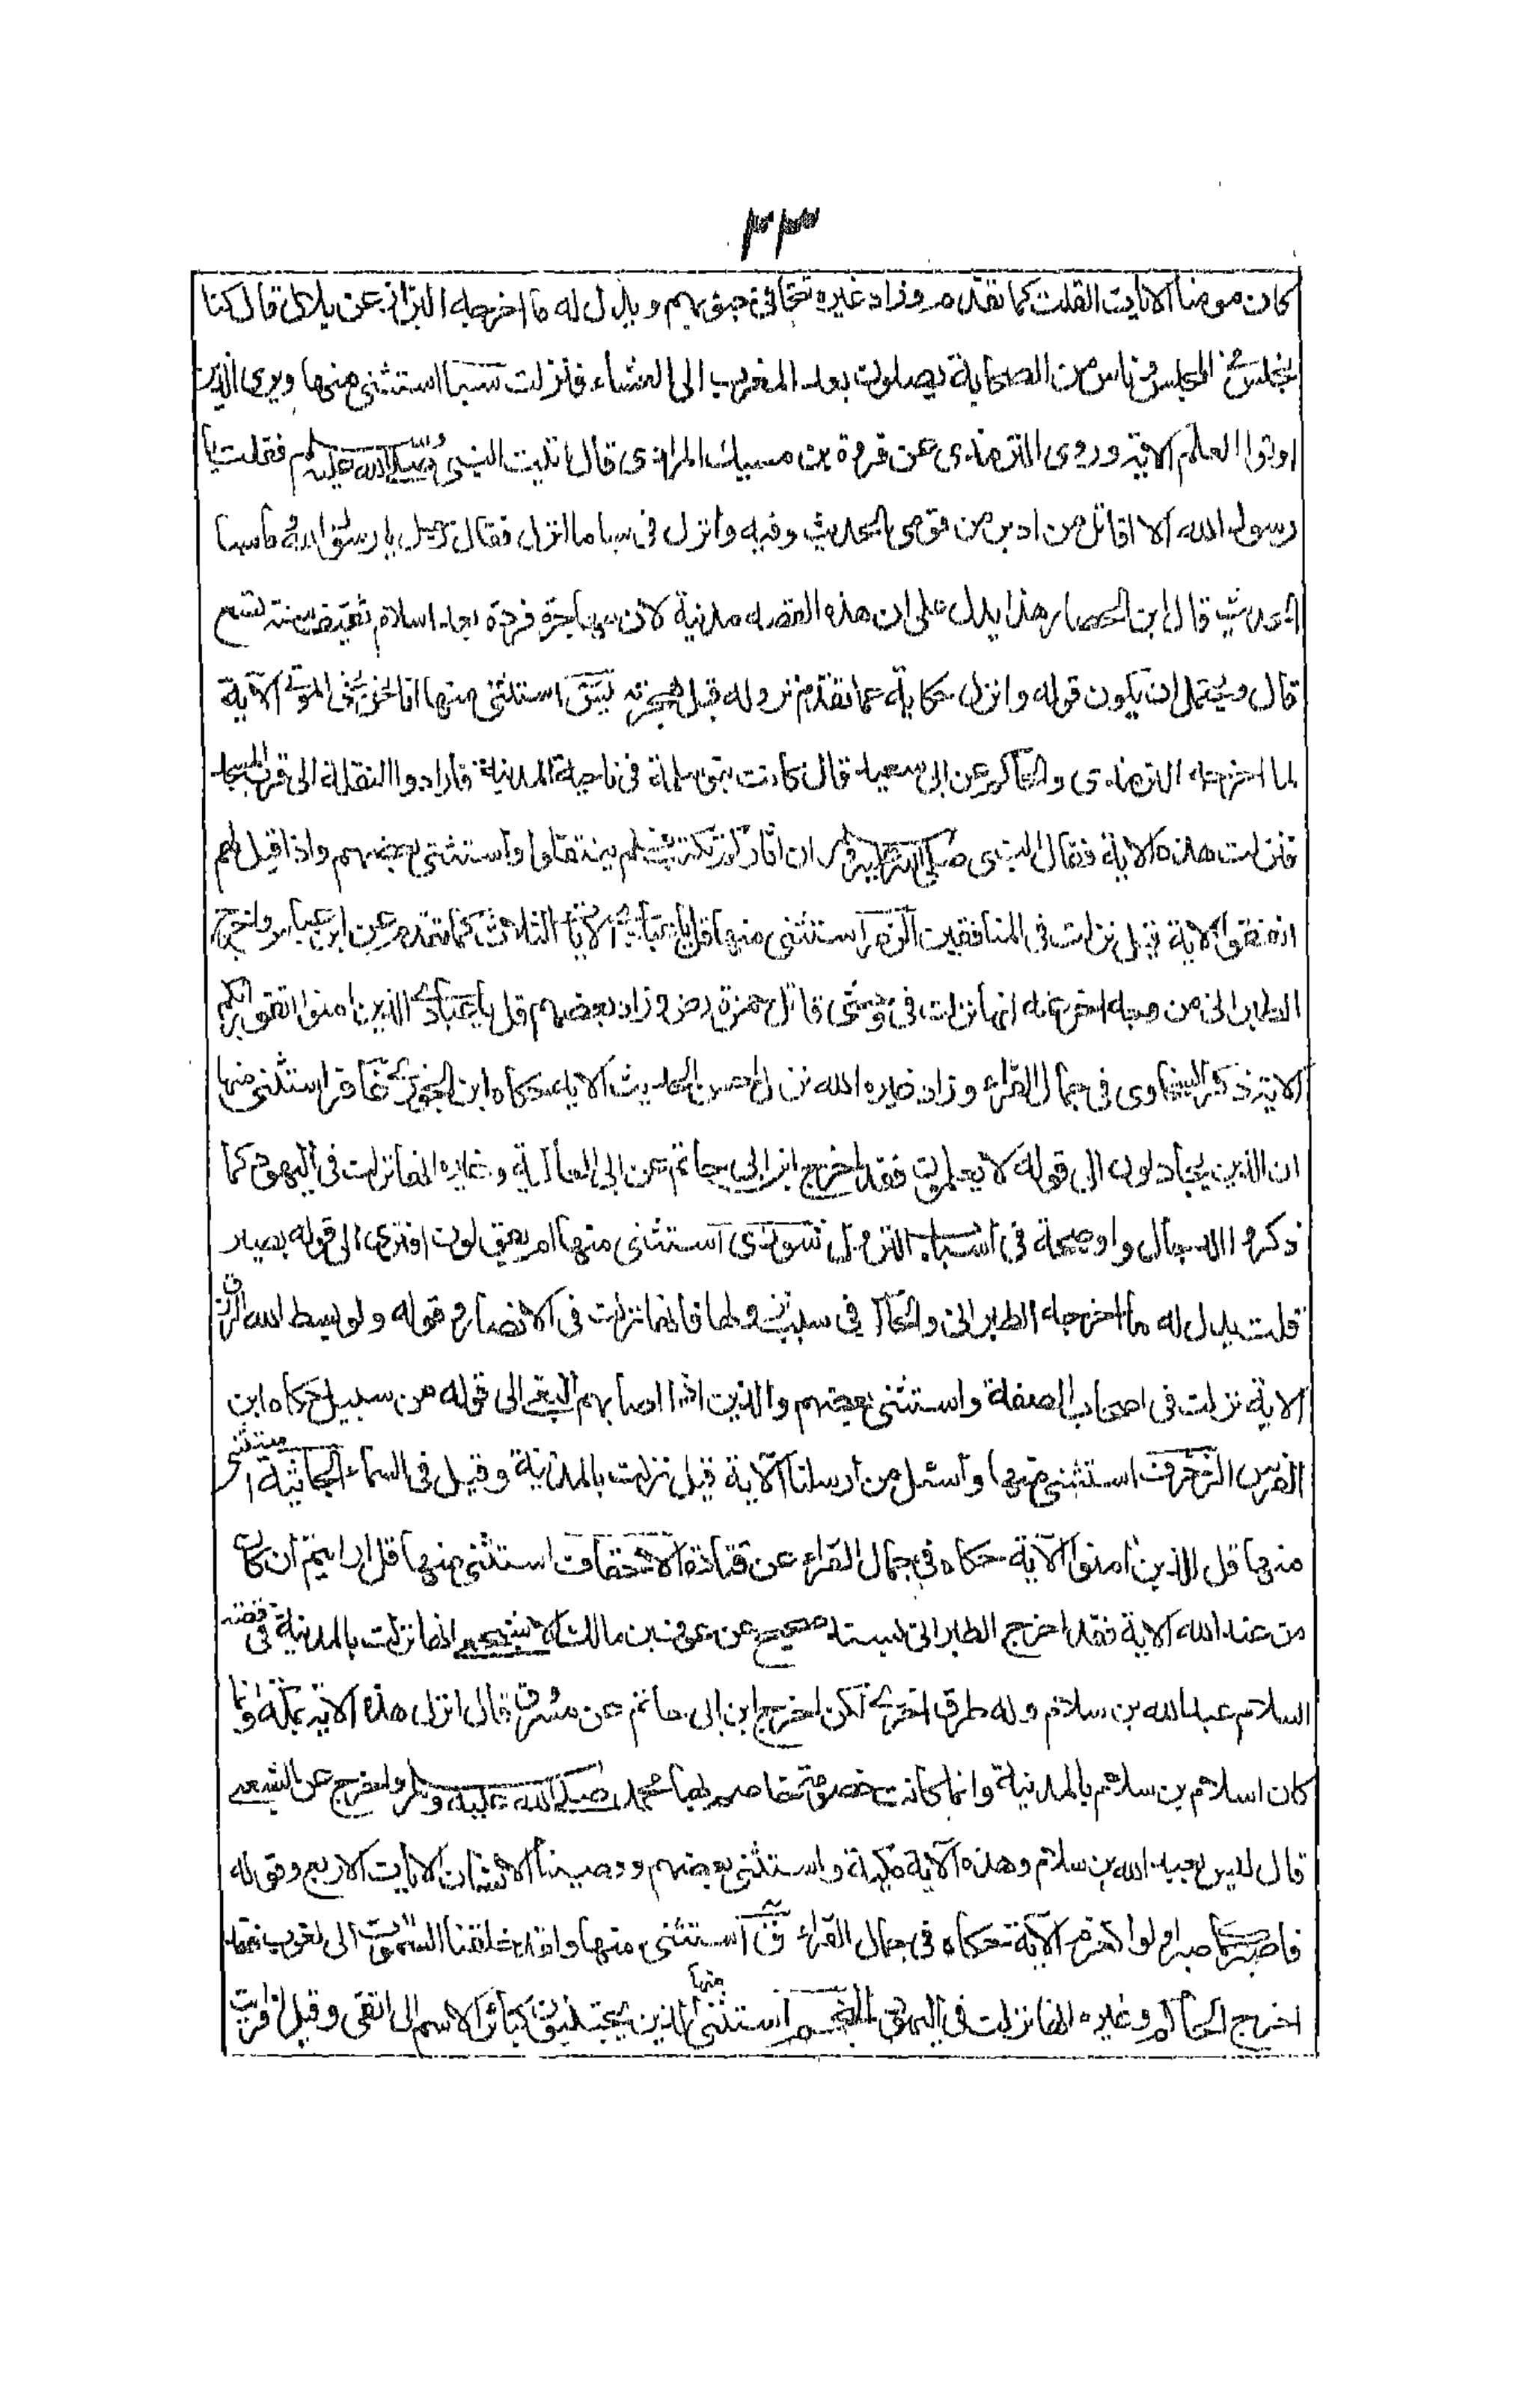 ٣٣
كان مومنا الايات الثلث كما تقدم وزاد غيره تتجافى جنوبهم ويدل له ما اخرجه البزار عن بلال قال كنا
نجلس في المجلس وناس من الصحابة يصلون بعد المغرب الى العشاء فنزلت سبا استثنى منها ويرى الذين
اوتوا العلم الاية وروى الترمذى عن فروة بن مسيك المرادى قال اتيت النبى صلى الله عليه وسلم فقلت يا
رسول الله الا اقاتل من ادبر من قومى الحديث وفيه وانزل فى سبا ما انزل فقال رجل يا رسول الله وما سبا
الحديث قال ابن الحصار هذا يدل على ان هذه القصه مدنية لان مهاجرة فروة بعد اسلام ثقيف سنة تسع
قال ويحتمل ان يكون قوله وانزل حكاية عما تقدم نزوله قبل هجرته يس استثنى منها انا نحن نحى الموتى الآية
لما اخرجه الترمذى والحاكم عن ابى سعيد قال كانت بنو سلمة فى ناحية المدينة فارادوا النقلة الى قرب المسجد
فنزلت هذه الاية فقال النبى صلى الله عليه وسلم ان اثاركم تكتب فلم ينتقلوا واستثنى بعضهم واذا قيل لهم
انفقوا الاية قيل نزلت فى المنافقين الزمر استثنى منها قل يا عبادى الايات الثلاث كما تقدم عن ابن عباس واخرج
الطبرانى من وجه اخر عنه انها نزلت فى وحشى قاتل حمزة رض وزاد بعضهم قل يا عباد الذين امنوا اتقوا ربكم
الاية ذكره السخاوى فى جمال القراء وزاد غيره الله نزل احسن الحديث الاية حكاه ابن الجوزى غافر استثنى منها
ان الذين يجادلون الى قوله لا يعلمون فقد اخرج ابن ابى حاتم عن ابى العالية وغيره انها نزلت فى اليهود كما
ذكره الدجال واوضحة فى اسباب النزول شورى استثنى منها ام يقولون افترى الى قوله بصير
قلت يدل له ما اخرجه الطبرانى والحاكم فى سبب نزولها فانها نزلت فى الانصار وقوله ولو بسط الله الرزق
الاية نزلت فى اصحاب الصفة واستثنى بعضهم والذين اذا اصابهم البغى الى قوله من سبيل حكاه ابن
الفرس الزخرف استثنى منها واسئل من ارسلنا الآية قيل نزلت بالمدينة وقيل فى السماء الجاثية استثنى
منها قل للذين امنوا الآية حكاه فى جمال القراء عن قتادة الاحقاف استثنى منها قل ارايتم ان كان
من عند الله الاية فقد اخرج الطبرانى بسند صحيح عن عوف بن مالك الاشجعى انها نزلت بالمدينة فى قصة
اسلام عبد الله بن سلام وله طرق اخرى لكن اخرج ابن ابى حاتم عن مسروق قال انزل هذه الاية بمكة وانما
كان اسلام بن سلام بالمدينة وانما كانت خصومة خاصم بها محمد صلى الله عليه وسلم واخرج عن الشعبى
قال ليس بعبد الله بن سلام وهذه الآية مكية واستثنى بعضهم ووصينا الانسان الايات الاربع وقوله
فاصبر كما صبر اولوا العزم الآية حكاه فى جمال القراء ق استثنى منها ولقد خلقنا السموت الى لغوب فقد
اخرج الحاكم وغيره انها نزلت فى اليهود النجم استثنى منها الذين يجتنبون كبائر الاثم الى اتقى وقيل افرايت